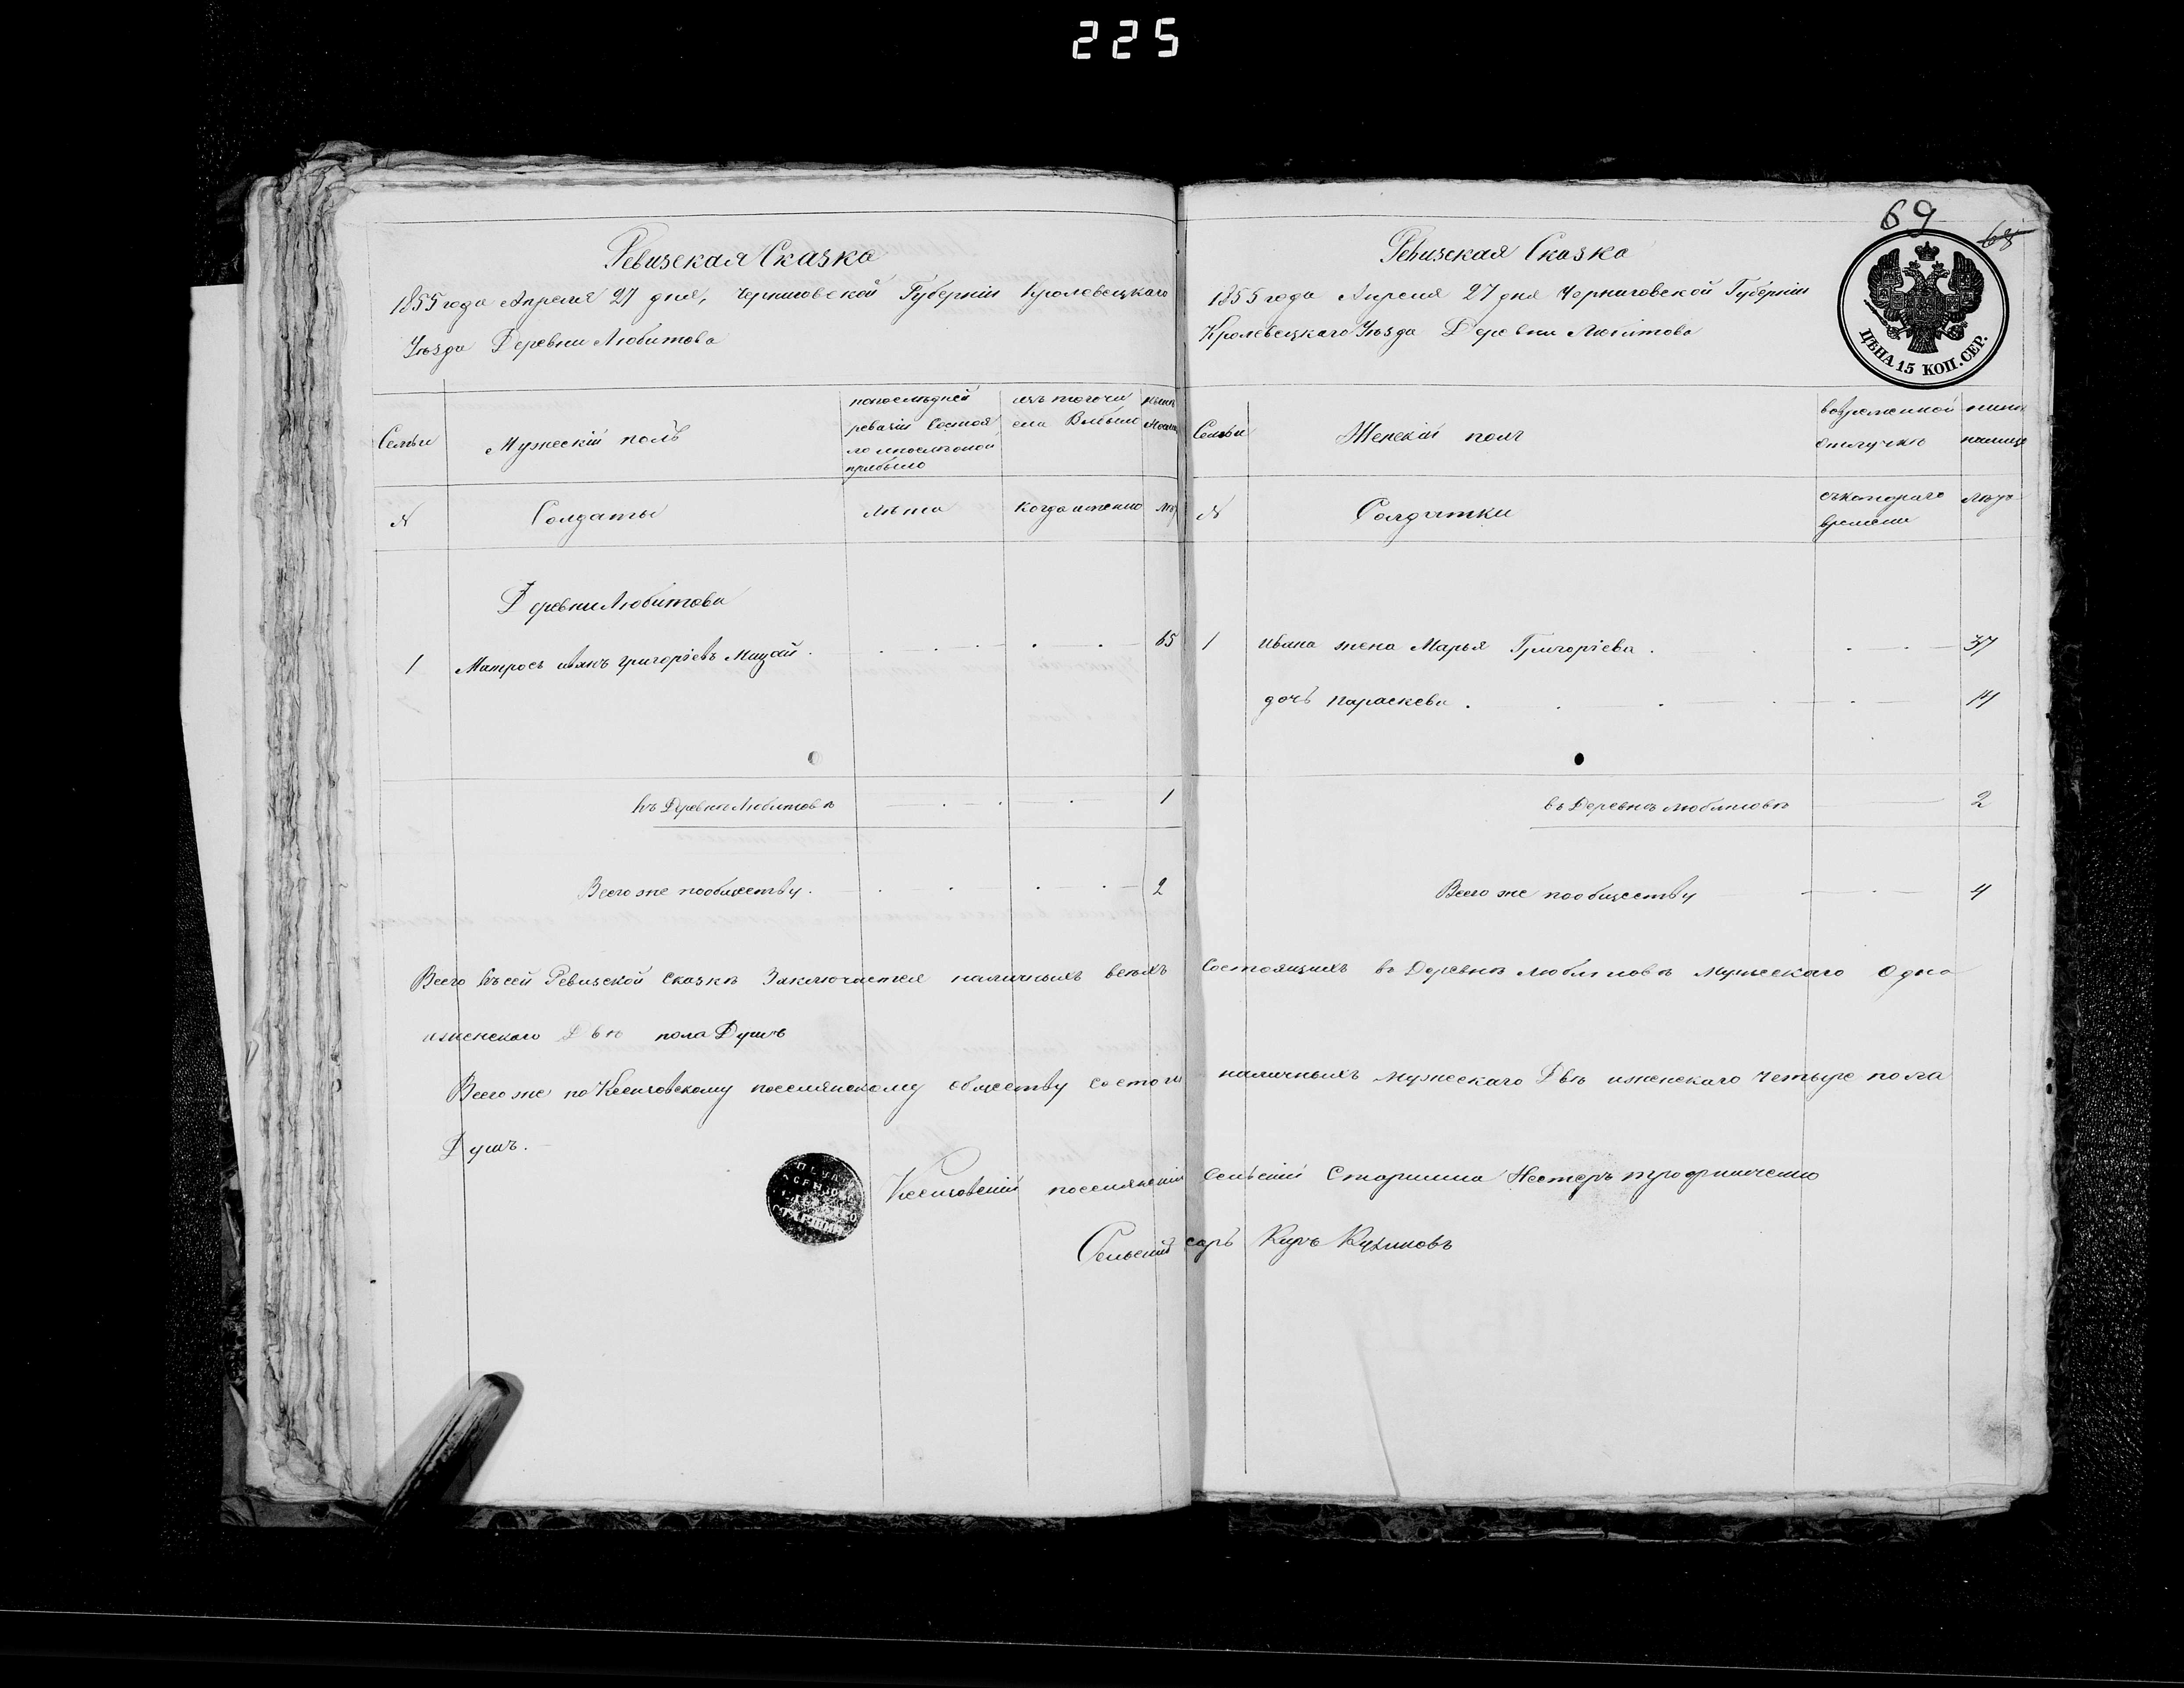 225
Ревизская Сказка
1855 года Апреля 27 дня, Черниговской Губерніи Кролевецкаго
Уѣзда Деревни Любитова
Семьи
Мужескій полъ
попослѣдней
ревизіи состоя
ло ипослѣтой
прибыло
изъ того чи
сла Выбыло
N
Солдаты
Лѣта
Когда именно
Деревни Любитова
1 Матросъ иванъ григорьевъ Мацай 65
въ Деревнѣ Любитовѣ 1
Всего же пообществу 2
69
68
Ревизская Сказка
1855 года Апреля 27 дня Черниговской Губерніи
Кролевецкаго Уѣзда Деревни Любитова
ЦѢНА 15 КОП. СЕР.
Семьи
Женскій полъ
вовременной
отлучкѣ
N
Солдатки
съкотораго
времени
1 Ивана жена Марья Григорьева 37
дочь Параскева 14
въ Деревнѣ любитовѣ 2
Всего же пообществу 4
Всего въ сей Ревизской сказкѣ Заключается наличныхъ всѣхъ состоящихъ въ Деревнѣ любитовѣ Мужескаго Одна
иженскаго Двѣ пола Душъ
Всего же по поселянскому обществу состоги наличныхъ Мужескаго Двѣ иженскаго Четыре пола
Душъ.
поселянскій Сельскій Старшина Нестеръ
Сельскій